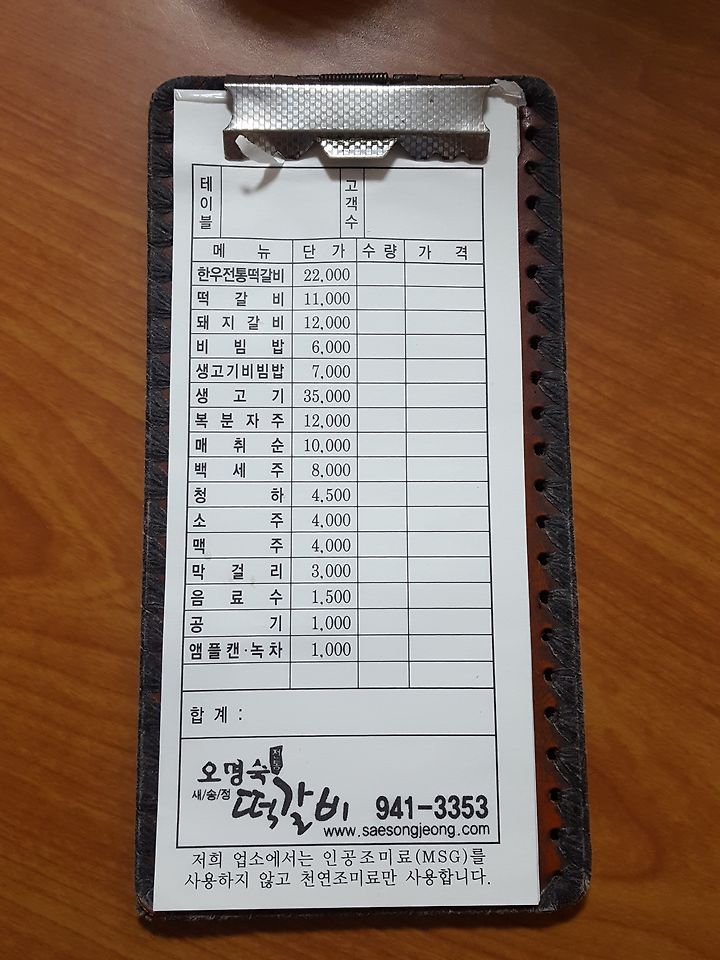 테이블 고객수
메뉴 단가 수량 가격
한우전통떡갈비 22,000
떡갈비 11,000
돼지갈비 12,000
비빔밥 6,000
생고기비빔밥 7,000
생고기 35,000
복분자주 12,000
매취순 10,000
백세주 8,000
청하 4,500
소주 4,000
맥주 4,000
막걸리 3,000
음료수 1,500
공기 1,000
앰플캔·녹차 1,000
합계 :
전통
오명숙
새/송/정 떡갈비 941-3353
www.saesongjeong.com
저희 업소에서는 인공조미료(MSG)를
사용하지 않고 천연조미료만 사용합니다.